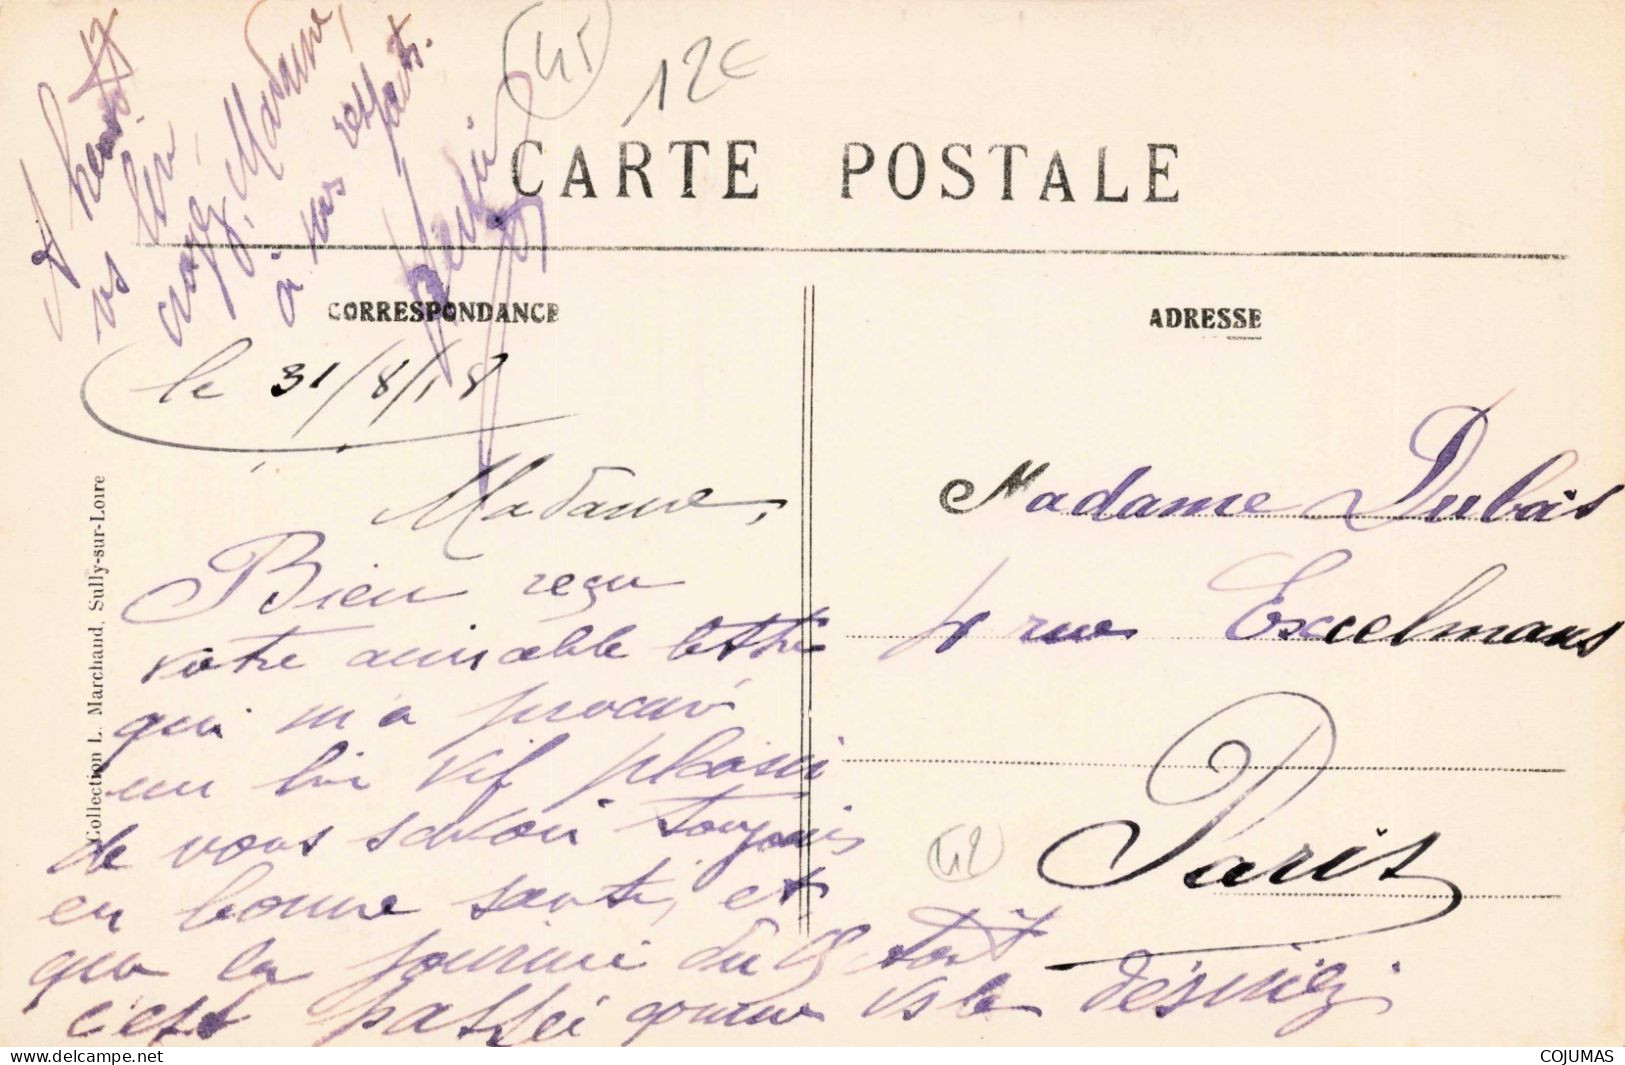 45
12€
CARTE POSTALE
CORRESPONDANCE
ADRESSE
le 31/8/18
Madame,
Bien reçu
votre aimable lettre
qui m'a procuré
un bien vif plaisir
de vous savoir toujours
en bonne santé, et
que la journée du 15 août
c'est passée comme vs le désiriez
croyez, Madame,
à nos respects.
Madame Dubois
rue Excelmans
Paris
42
Collection L. Marchand, Sully-sur-Loire
COJUMAS
www.delcampe.net